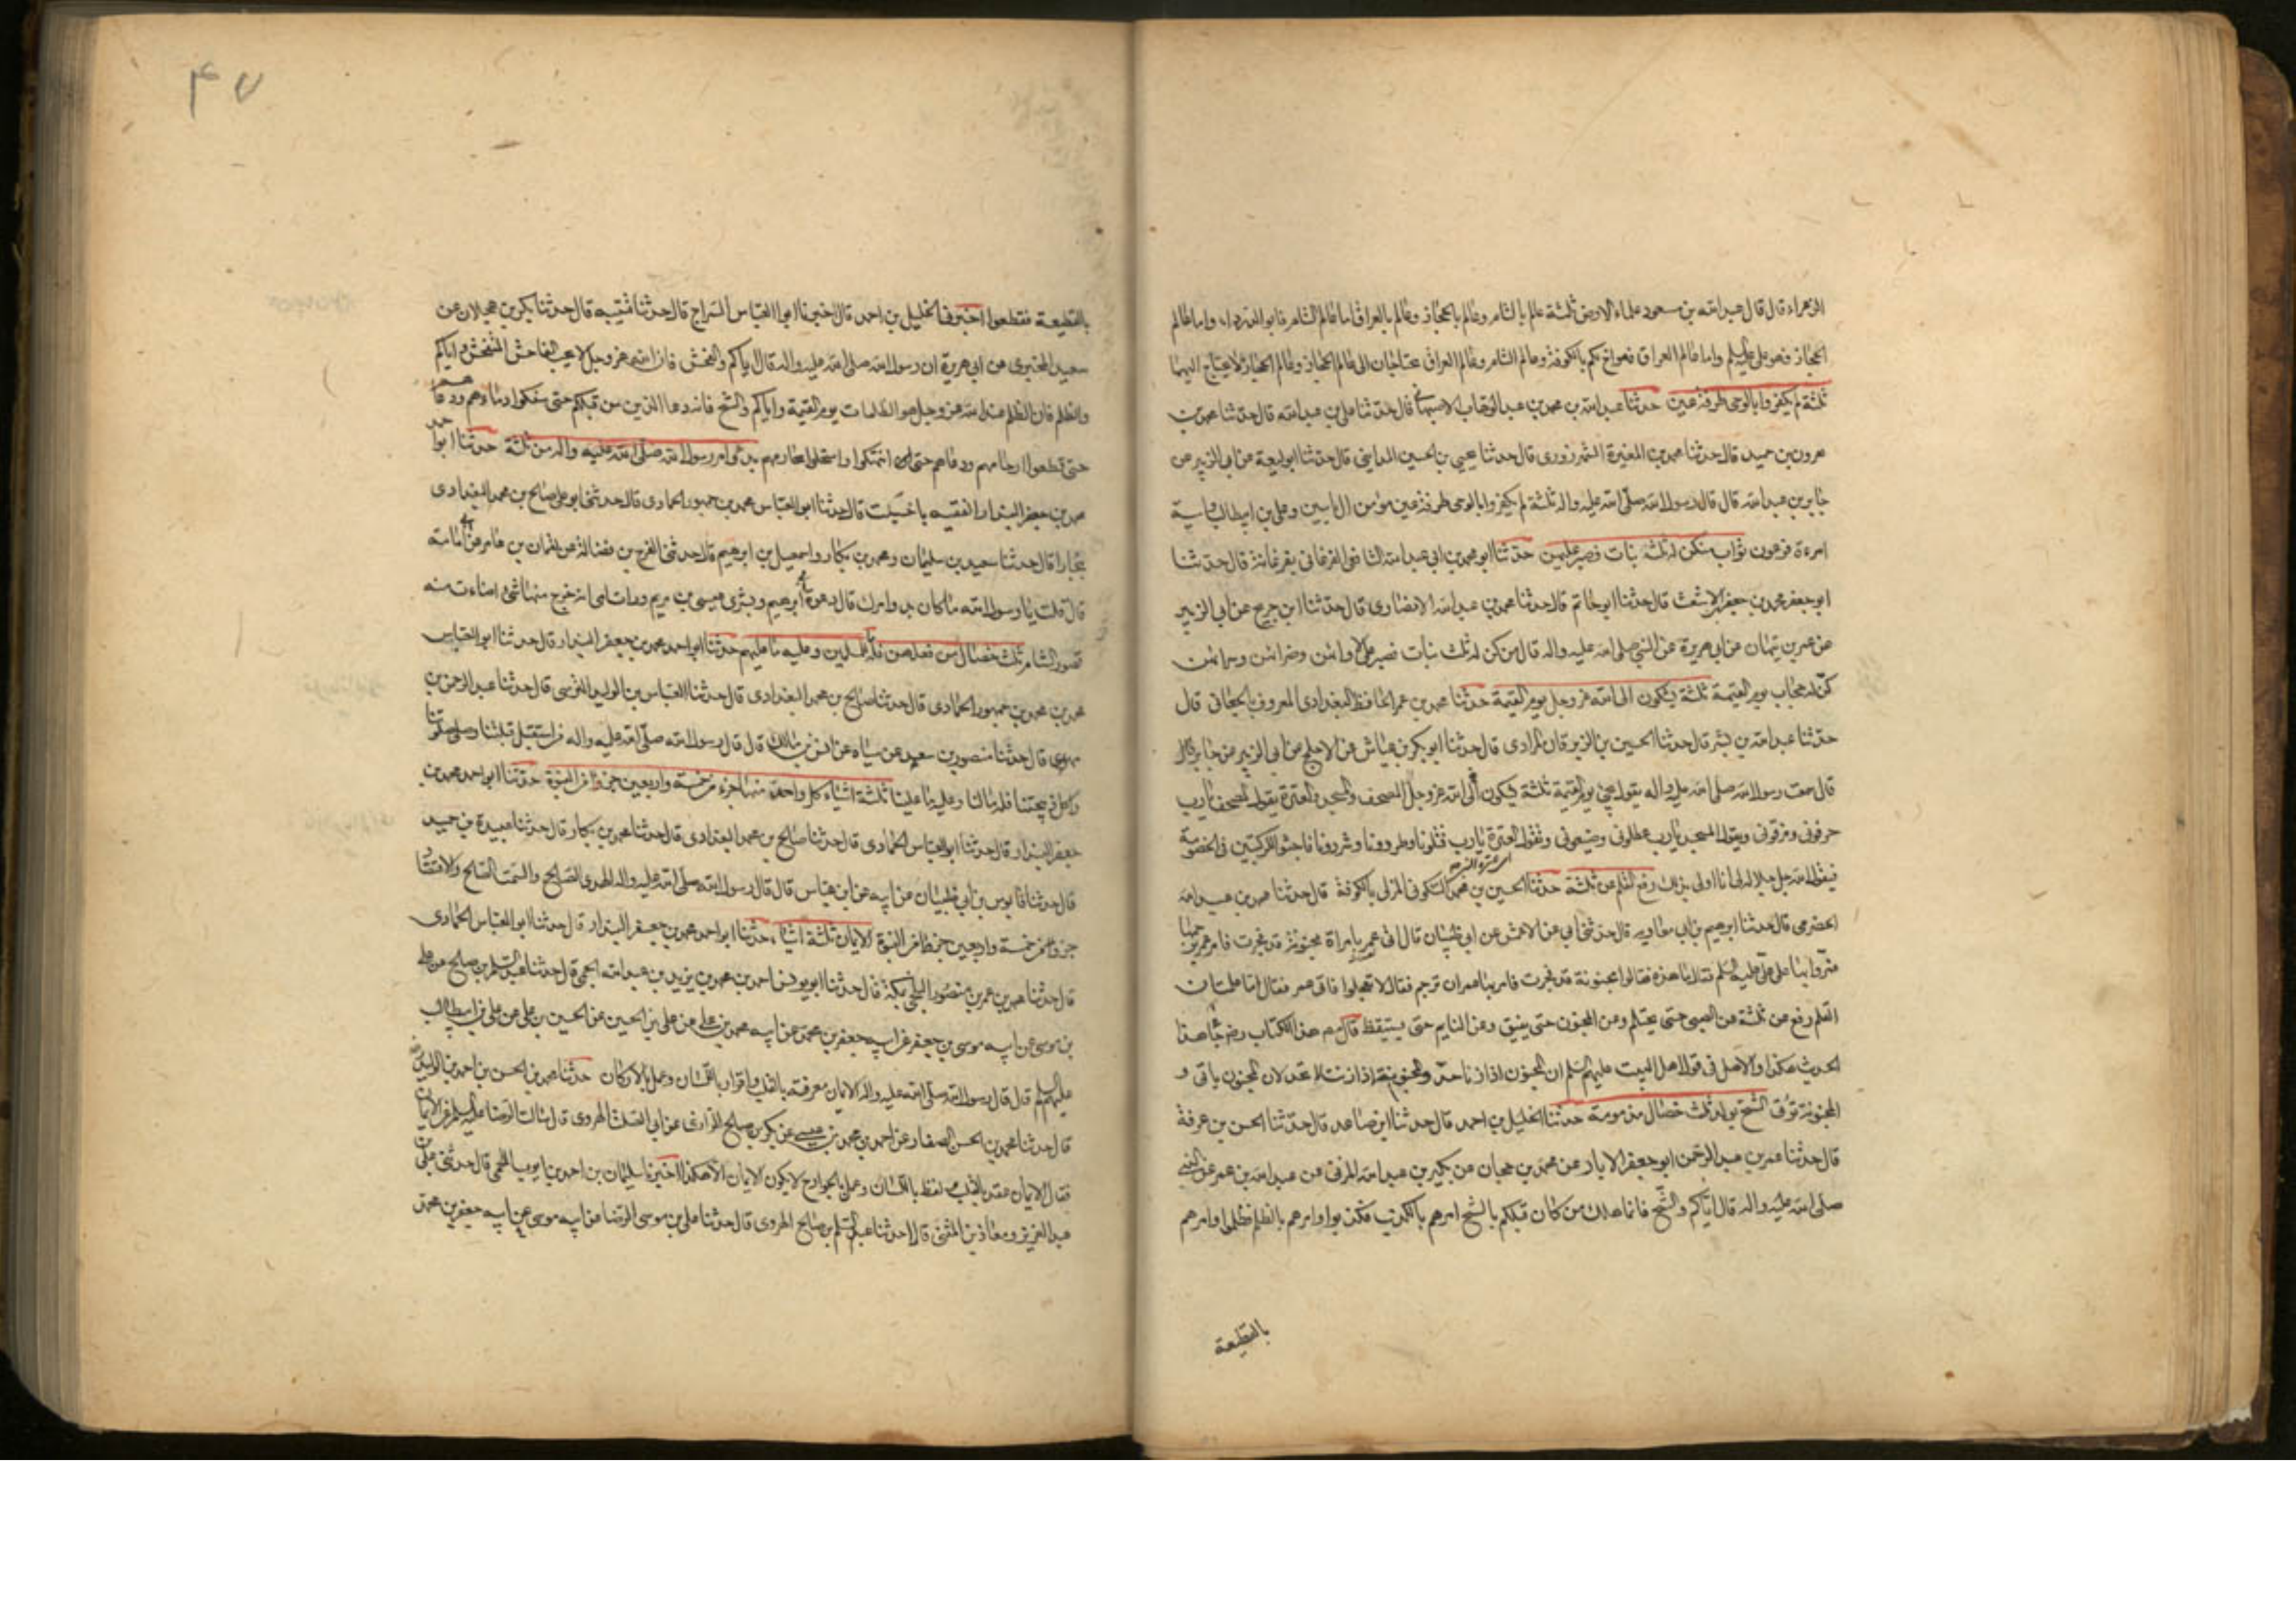 الزهراء قال قال عبد الله بن مسعود علماء الارض ثلثة عالم بالشام وعالم بالحجاز وعالم بالعراق اما عالم الشام فابو الدرداء واما عالم
الحجاز فهو علي عليه السلم واما عالم العراق فهو اخ لكم بالكوفة وعالم الشام وعالم العراق محتاجان الى عالم الحجاز وعالم الحجاز لا يحتاج اليهما
ثلثة لم يكفروا بالوحي طرفة عين حدثنا عبد الله بن محمد بن عبد الوهاب الاصبهاني قال حدثنا علي بن عبد الله قال حدثنا محمد بن
هرون بن حميد قال حدثنا محمد بن المغيرة الشهرزوري قال حدثنا يحيى بن الحسين المدايني قال حدثنا ابو لهيعة عن ابي الزبير عن
جابر بن عبد الله قال قال رسول الله صلى الله عليه واله ثلثة لم يكفروا بالوحي طرفة عين مؤمن ال ياسين وعلي بن ابيطالب واسية
امرءة فرعون ثواب من كن له ثلث بنات فصبر عليهن حدثنا ابو محمد بن ابي عبد الله الشافعي الفرغاني بفرغانة قال حدثنا
ابو جعفر محمد بن جعفر الاشعث قال حدثنا ابو حاتم قال حدثنا محمد بن عبد الله الانصاري قال حدثنا ابن جريح عن ابي الزبير
عن عمر بن تيهان عن ابي هريرة عن النبي صلى الله عليه واله قال من كن له ثلث بنات فصبر على لاوائهن وضرائهن وسرائهن
كن له حجاب يوم القيمة ثلثة يشكون الى الله عز وجل يوم القيمة حدثنا محمد بن عمر الحافظ البغدادي المعروف بالجعابي قال
حدثنا عبد الله بن بشر قال حدثنا الحسين بن الزبرقان المرادي قال حدثنا ابو بكر بن عياش عن الاجلح عن ابي الزبير عن جابر قال
قال سمعت رسول الله صلى الله عليه واله يقول يجيء يوم القيمة ثلثة يشكون الى الله عز وجل المصحف والمسجد والعترة يقول المصحف يا رب
حرفوني ومزقوني ويقول المسجد يا رب عطلوني وضيعوني وتقول العترة يا رب قتلونا وطردونا وشردونا فاجثوا للركبتين في الخصومة
فيقول الله جل جلاله لي انا اولى بذلك رفع القلم عن ثلثة حدثنا الحسين بن محمد السكوني المزكى بالكوفة قال حدثنا محمد بن عبد الله
الحضرمي قال حدثنا ابرهيم بن ابي معاوية قال حدثني ابي عن الاعمش عن ابي ظبيان قال اتى عمر بامراة مجنونة قد فجرت فامر برجمها
فمروا بها على علي عليه السلم فقال ما هذه فقالوا مجنونة قد فجرت فامر بها عمر ان ترجم فقال لا تعجلوا فاتى عمر فقال اما علمت ان
القلم رفع عن ثلثة عن الصبي حتى يحتلم وعن المجنون حتى يفيق وعن النايم حتى يستيقظ قال مصنف هذا الكتاب رضه جاء هذا
الحديث هكذا والاصل في قول اهل البيت عليهم السلم ان المجنون اذا زنا حد والمجنونة اذا زنت لا تحد لان المجنون ياتي و
المجنونة تؤتى الشح يولد ثلث خصال مذمومة حدثنا الخليل بن احمد قال حدثنا ابن صاعد قال حدثنا الحسن بن عرفة
قال حدثنا عمر بن عبد الرحمن ابو جعفر الابار عن محمد بن جحان عن بكير بن عبد الله المزني عن عبد الله بن عمر عن النبي
صلى الله عليه واله قال اياكم والشح فانما هلك من كان قبلكم بالشح امرهم بالكذب فكذبوا وامرهم بالظلم فظلموا وامرهم
بالقطيعة
٤٧
بالقطيعة فقطعوا اخبرني الخليل بن احمد قال اخبرنا ابو العباس السراج قال حدثنا قتيبه قال حدثنا بكر بن عجلان عن
سعيد المقبري عن ابي هريرة ان رسول الله صلى الله عليه واله قال اياكم والفحش فان الله عز وجل لا يحب الفاحش المتفحش واياكم
والظلم فان الظلم عند الله عز وجل هو الظلمات يوم القيمة واياكم والشح فانه دعا الذين من قبلكم حتى سفكوا دماءهم ودعاهم
حتى قطعوا ارحامهم ودعاهم حتى انتهكوا واستحلوا محارمهم بدئ امر رسول الله صلى الله عليه واله من ثلثة حدثنا ابو احمد
محمد بن جعفر البندار الفقيه باخسيكت قال حدثنا ابو العباس محمد بن جمهور الحمادي قال حدثني ابو علي صالح بن محمد البغدادي
ببخارا قال حدثنا سعيد بن سليمان ومحمد بن بكار واسمعيل بن ابرهيم قال حدثني الفرج بن فضالة عن لقمان بن عامر عن ابي امامة
قال قلت يا رسول الله ما كان بدو امرك قال دعوة ابي ابرهيم وبشرى عيسى بن مريم ورات امي انه خرج منها شيء اضاءت منه
قصور الشام ثلث خصال من فعلهن فله ما للمسلمين وعليه ما عليهم حدثنا ابو احمد محمد بن جعفر البندار قال حدثنا ابو العباس
محمد بن محمد بن جمهور الحمادي قال حدثنا صالح بن محمد البغدادي قال حدثنا العباس بن الوليد النرسي قال حدثنا عبد الرحمن بن
مهدي قال حدثنا منصور بن سعيد عن سياه عن انس بن مالك قال قال رسول الله صلى الله عليه واله من استقبل قبلتنا وصلى صلوتنا
واكل ذبيحتنا فله مالنا وعليه ما علينا ثلثة اشياء كل واحدة منها جزء من خمسة واربعين جزوا من النبوة حدثنا ابو احمد محمد بن
جعفر البندار قال حدثنا ابو العباس الحمادي قال حدثنا صالح بن محمد البغدادي قال حدثنا محمد بن بكار قال حدثنا عبيدة بن حميد
قال حدثنا قابوس بن ابي ظبيان عن ابيه عن ابن عباس قال قال رسول الله صلى الله عليه واله الهدى الصالح والسمت الصالح والاقتصاد
جزو من خمسة واربعين جزءا من النبوة الايمان ثلثة اشياء حدثنا ابو احمد محمد بن جعفر البندار قال حدثنا ابو العباس الحمادي
قال حدثنا محمد بن عمر بن منصور البلخي بمكة قال حدثنا ابو يونس احمد بن محمد بن يزيد بن عبد الله الجمحي قال حدثنا عبد السلم بن صالح عن علي
بن موسى عن ابيه موسى بن جعفر عن ابيه جعفر بن محمد عن ابيه محمد بن علي عن علي بن الحسين عن الحسين بن علي عن علي بن ابيطالب
عليهم السلم قال قال رسول الله صلى الله عليه واله الايمان معرفة بالقلب واقرار باللسان وعمل بالاركان حدثنا محمد بن الحسن بن احمد بن الوليد رضه
قال حدثنا محمد بن الحسن الصفار عن احمد بن محمد بن عيسى عن بكر بن صالح الرازي عن ابي الصلت الهروي قال سالت الرضا عليه السلم عن الايمان
فقال الايمان عقد بالقلب ولفظ باللسان وعمل بالجوارح لا يكون الايمان الا هكذا اخبرنا سليمان بن احمد بن ايوب اللخمي قال حدثني علي بن
عبد العزيز ومعاذ بن المثنى قالا حدثنا عبد السلم بن صالح الهروي قال حدثنا علي بن موسى الرضا عن ابيه موسى عن ابيه جعفر بن محمد